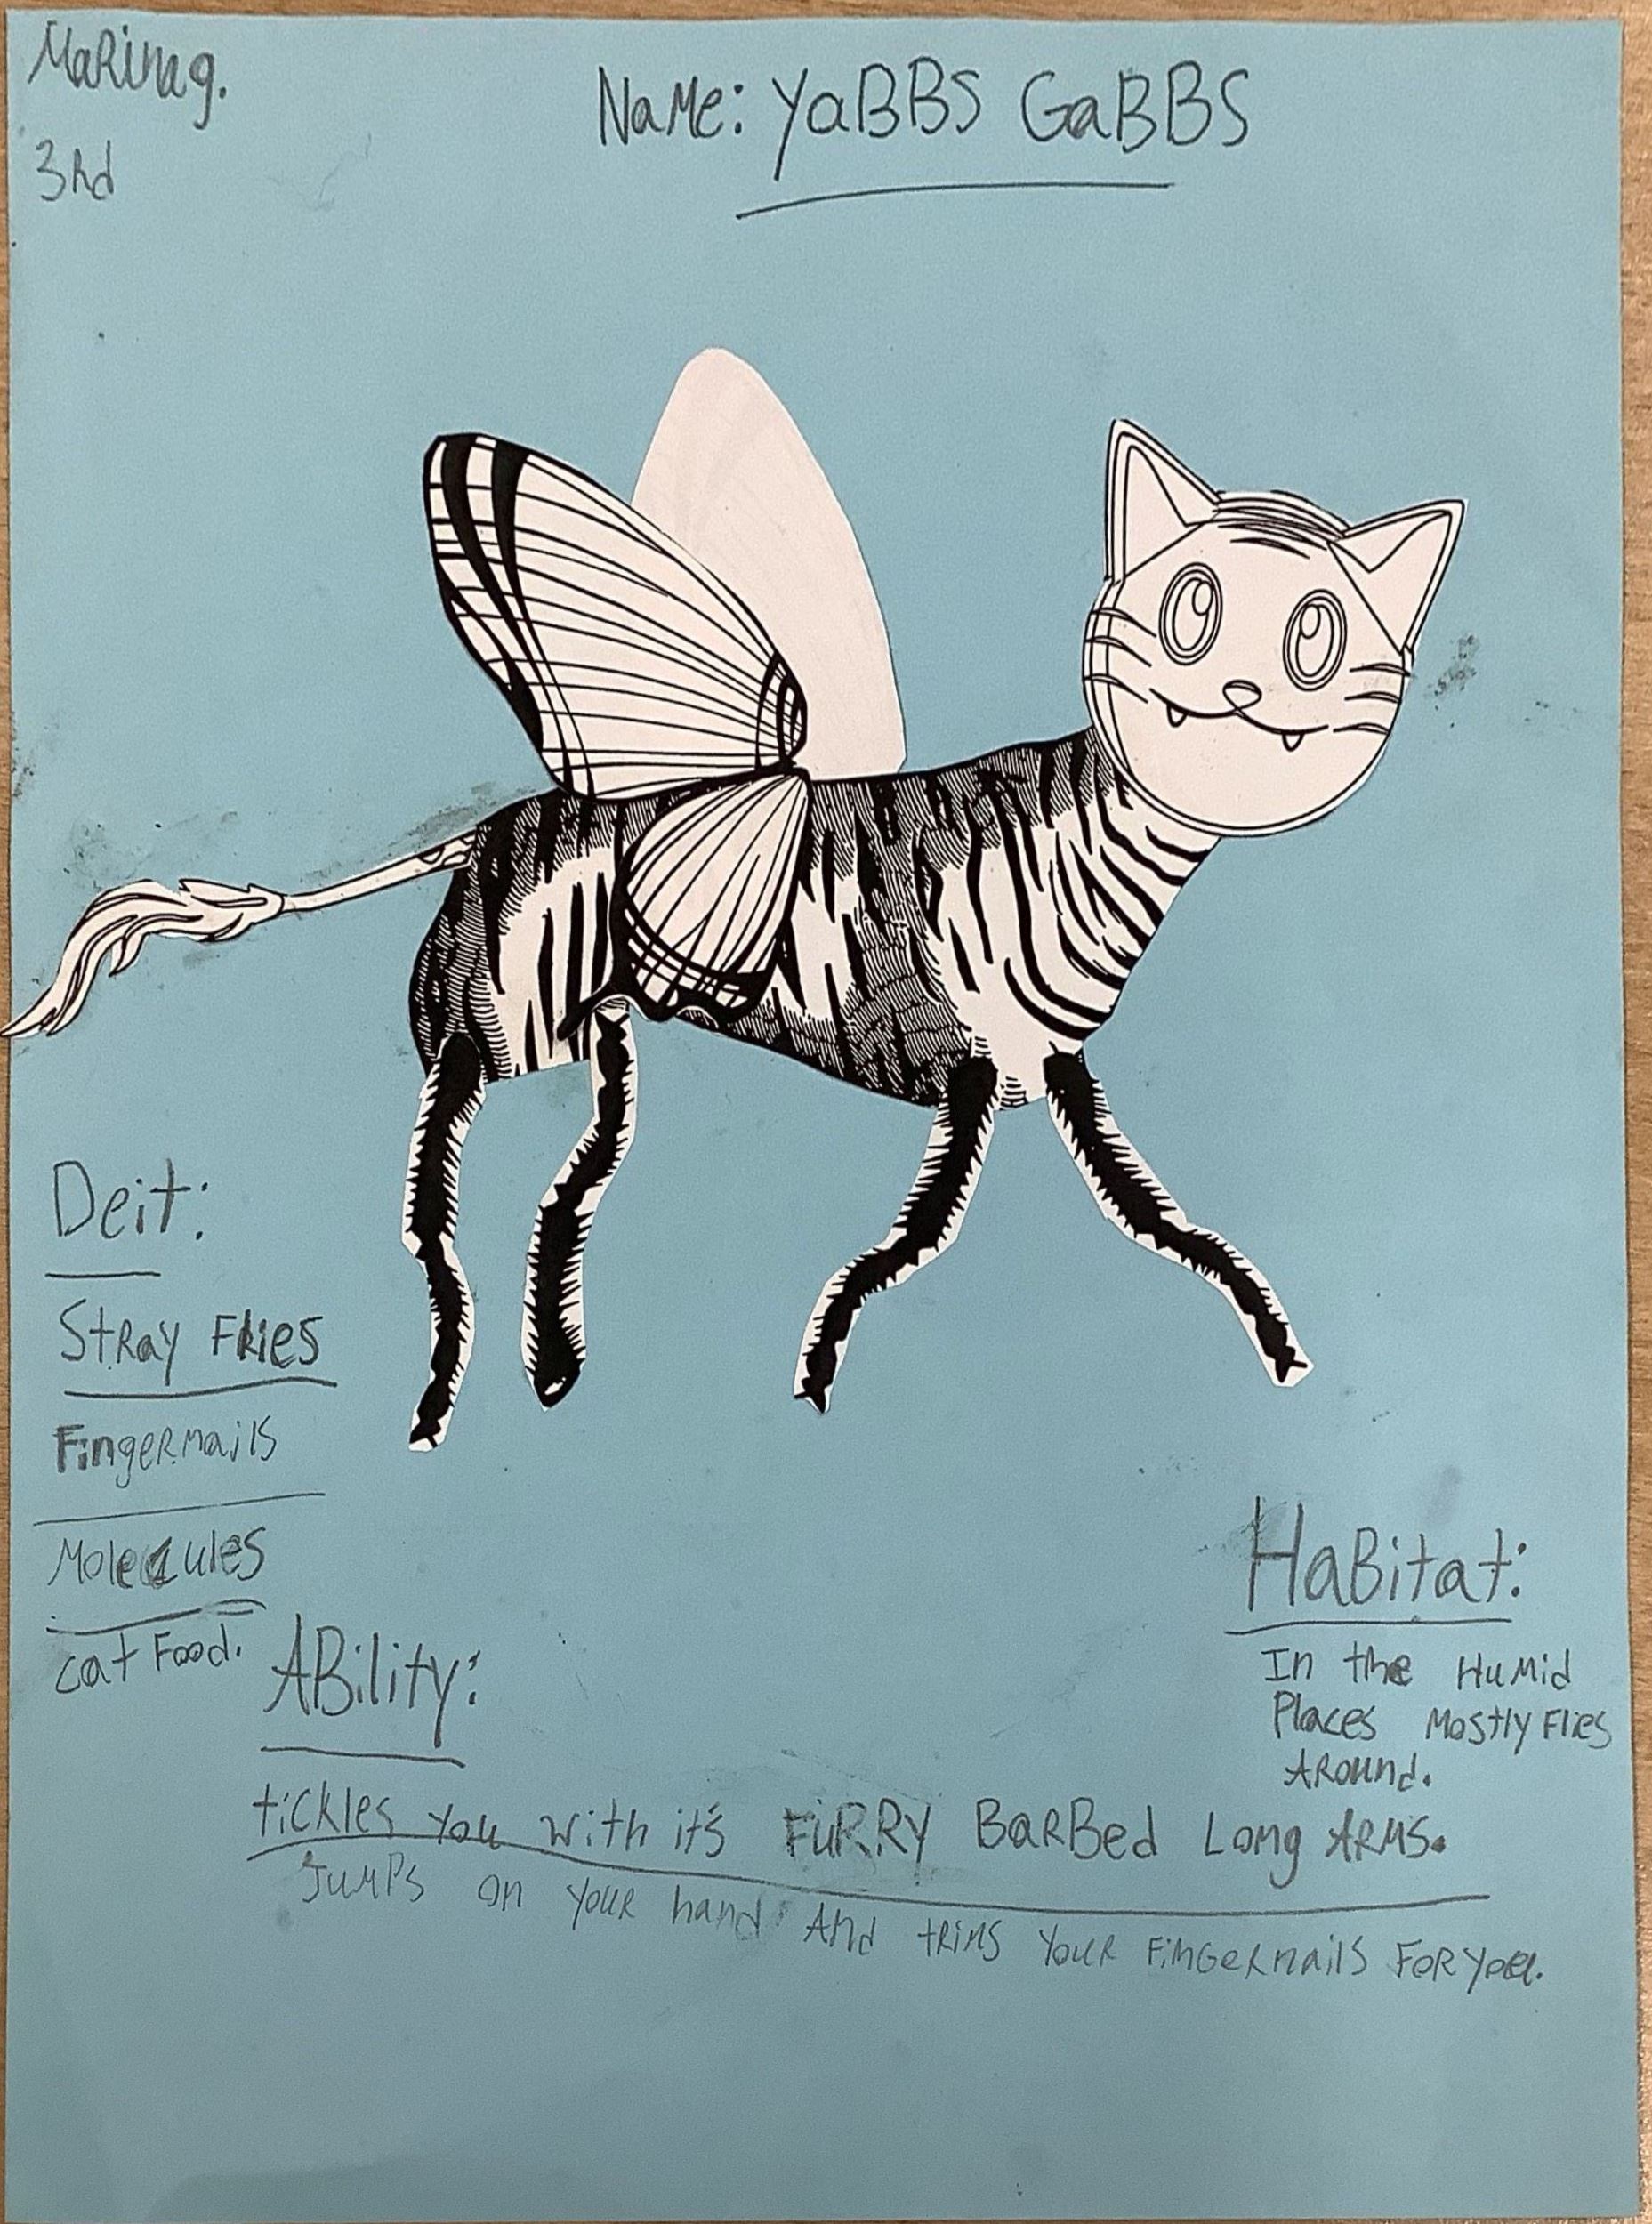 MaRina g.
3rd
Name: YaBBS GaBBS
Deit:
StRay FRies
FingeRnails
Molecules
cat Food.
ABility:
tickles you with it's FuRRY BaRBed Long ARMS.
JuMPs on youR hand And tRiMS YouR FinGeRnails FoR you.
HaBitat:
In the HuMid
Places Mostly Flies
ARound.